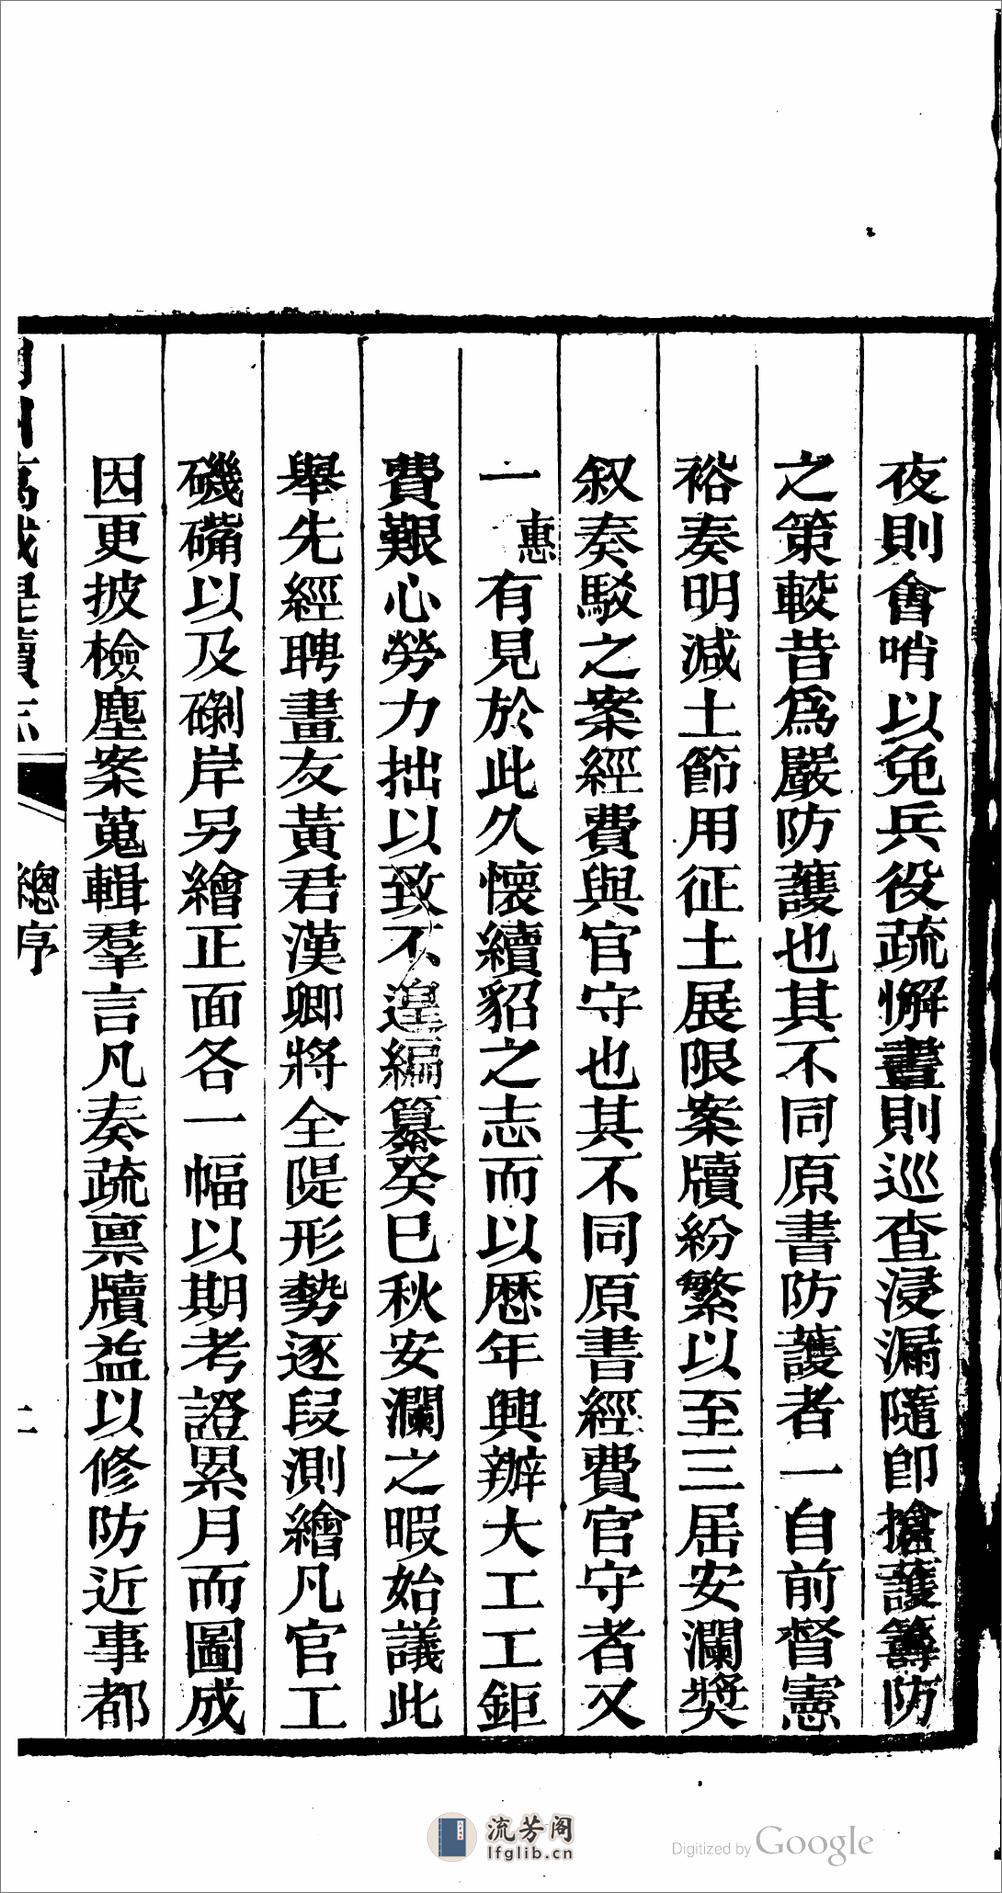 夜則會哨以免兵役疏懈晝則巡查浸漏隨卽搶護籌防
之策較昔爲嚴防護也其不同原書防護者一自前督憲
裕奏明減土節用征土展限案牘紛繁以至三屆安瀾奬
叙奏駁之案經費與官守也其不同原書經費官守者又
一惠有見於此久懷續貂之志而以歷年興辦大工工鉅
費艱心勞力拙以致不遑編纂癸巳秋安瀾之暇始議此
舉先經聘畫友黃君漢卿將全隄形勢逐段測繪凡官工
磯嘴以及磡岸另繪正面各一幅以期考證累月而圖成
因更披檢塵案蒐輯羣言凡奏疏禀牘益以修防近事都
荊州萬城隄續志
總序
二
流芳阁
lfglib.cn
Digitized by Google